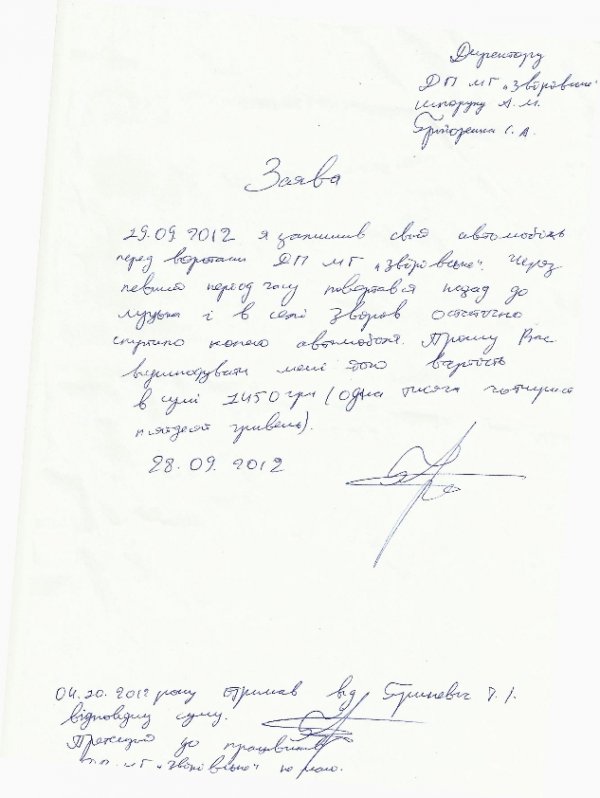 Директору
ДП МГ „Звірівське"
Шпоруку А. М.
С. А.
Заява
29.09.2012 я залишив свій автомобіль
перед воротами ДП МГ „Звірівське". Через
певний період часу повертався назад до
Луцька і в селі Звірів остаточно
спустило колесо автомобіля. Прошу Вас
відшкодувати мені його вартість
в сумі 1450 грн (одна тисяча чотириста
п'ятдесят гривень).
28.09.2012
04.10.2012 року отримав від Гриневич
відповідну суму.
Претензій до працівників
ДП МГ „Звірівське" не маю.